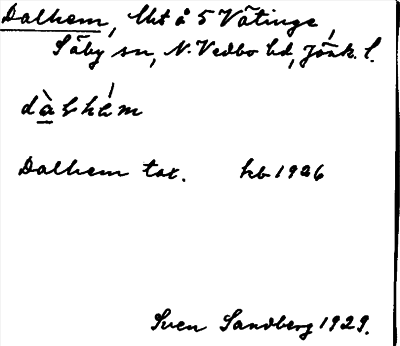 Dalhem, lht å 5 Vätinge,
Säby sn, N. Vedbo hd, Jönk. l.
dàlhém
Dalhem tax. hb 1926
Sven Sandberg 1929.